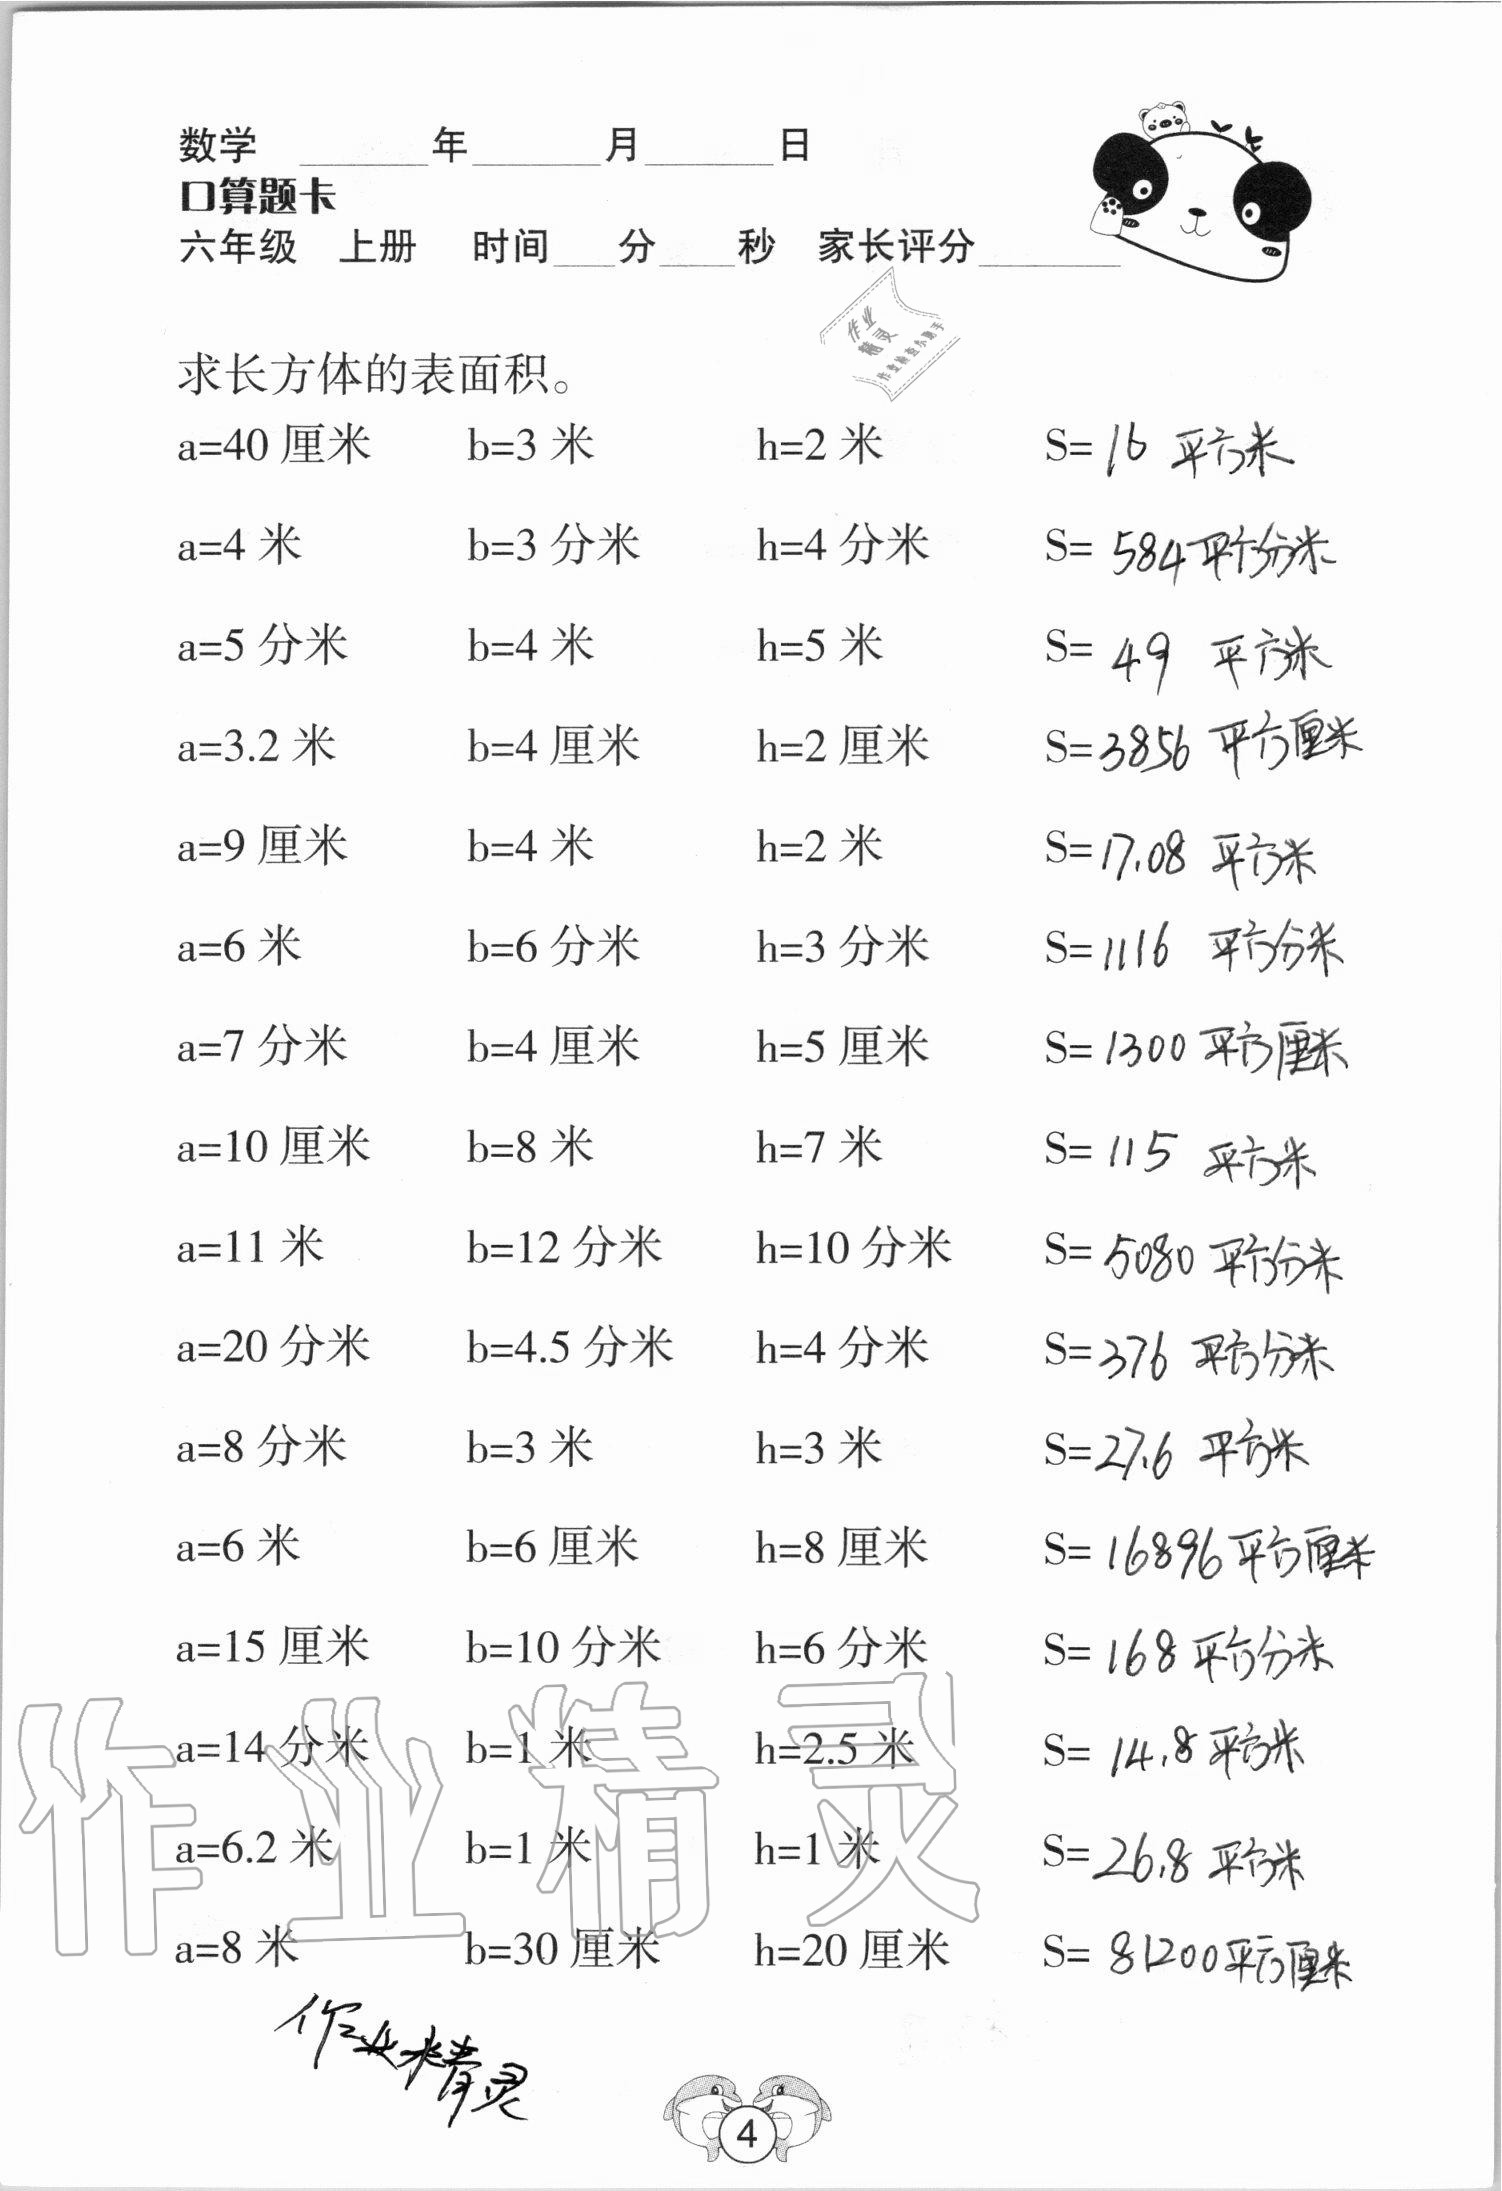 数学 ______年______月______日
口算题卡
六年级 上册 时间___分____秒 家长评分_______
作业
精灵
作业检查小助手
求长方体的表面积。
a=40 厘米 b=3 米 h=2 米 S= 16 平方米
a=4 米 b=3 分米 h=4 分米 S= 584 平方分米
a=5 分米 b=4 米 h=5 米 S= 49 平方米
a=3.2 米 b=4 厘米 h=2 厘米 S= 3856 平方厘米
a=9 厘米 b=4 米 h=2 米 S= 17.08 平方米
a=6 米 b=6 分米 h=3 分米 S= 1116 平方分米
a=7 分米 b=4 厘米 h=5 厘米 S= 1300 平方厘米
a=10 厘米 b=8 米 h=7 米 S= 115 平方米
a=11 米 b=12 分米 h=10 分米 S= 5080 平方分米
a=20 分米 b=4.5 分米 h=4 分米 S= 376 平方分米
a=8 分米 b=3 米 h=3 米 S= 27.6 平方米
a=6 米 b=6 厘米 h=8 厘米 S= 16896 平方厘米
a=15 厘米 b=10 分米 h=6 分米 S= 168 平方分米
a=14 分米 b=1 米 h=2.5 米 S= 14.8 平方米
作业精灵
a=6.2 米 b=1 米 h=1 米 S= 26.8 平方米
a=8 米 b=30 厘米 h=20 厘米 S= 81200 平方厘米
作业精灵
4